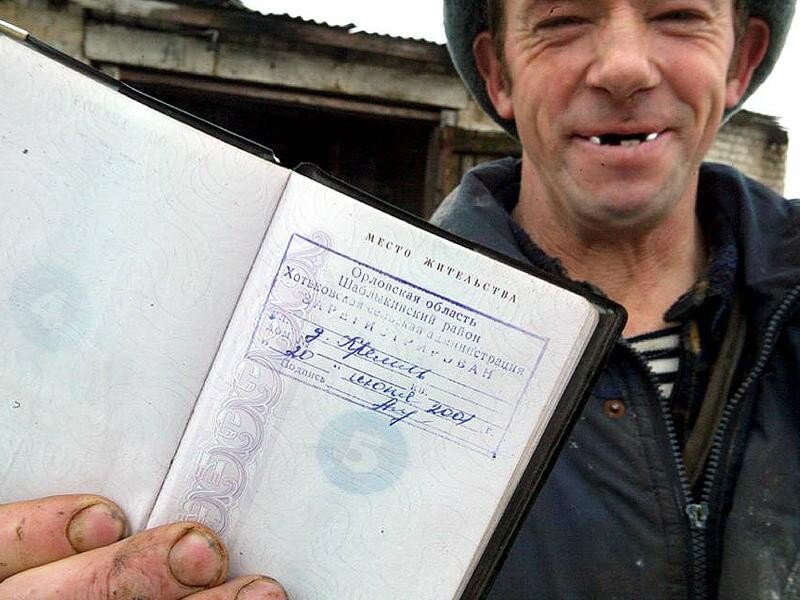 МЕСТО ЖИТЕЛЬСТВА
Орловская область
Шаблыкинский район
Хотьковская сельская администрация
ЗАРЕГИСТРИРОВАН
д. Кремль
дом кв.
" 20 " июня 2001 г.
Подпись
5